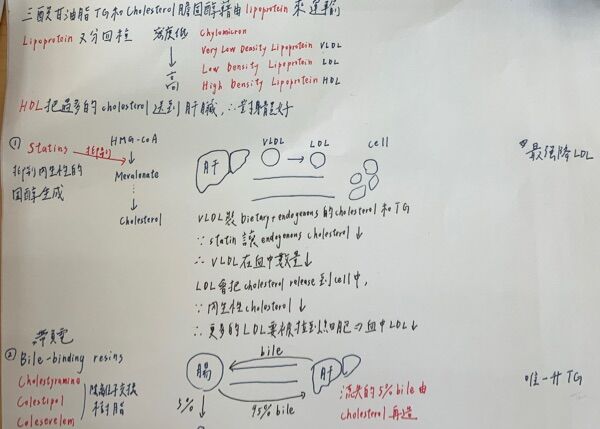 三酸甘油脂 TG 和 Cholesterol 膽固醇藉由 lipoprotein 來運輸
Lipoprotein 又分四種 密度低 Chylomicron
Very Low Density Lipoprotein VLDL
Low Density Lipoprotein LDL
高 High Density Lipoprotein HDL
HDL 把過多的 cholesterol 送到肝臟, ∴對身體好
① Statins 抑制 HMG-CoA
抑制內生性的
固醇生成
Mevalonate
Cholesterol
肝 VLDL → LDL cell
最強降 LDL
VLDL 裝 Dietary + endogenous 的 cholesterol 和 TG
∵ statin 讓 endogenous cholesterol ↓
∴ VLDL 在血中數量 ↓
LDL 會把 cholesterol release 到 cell 中,
∵ 內生性 cholesterol ↓
∴ 更多的 LDL 要被拉到細胞 → 血中 LDL ↓
帶負電
② Bile-binding resins
Cholestyramine
Colestipol
Colesevelam
陰離子交換
樹脂
腸 bile 肝
5% 95% bile
流失的 5% bile 由
cholesterol 再造
唯一升 TG